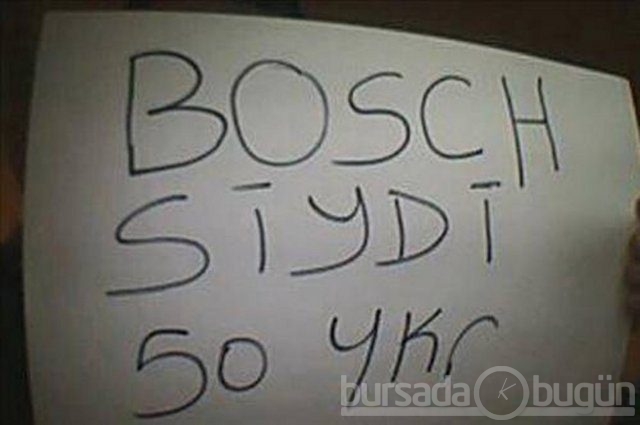 BOSCH
SİYDİ
50 YKr
bursada bugün